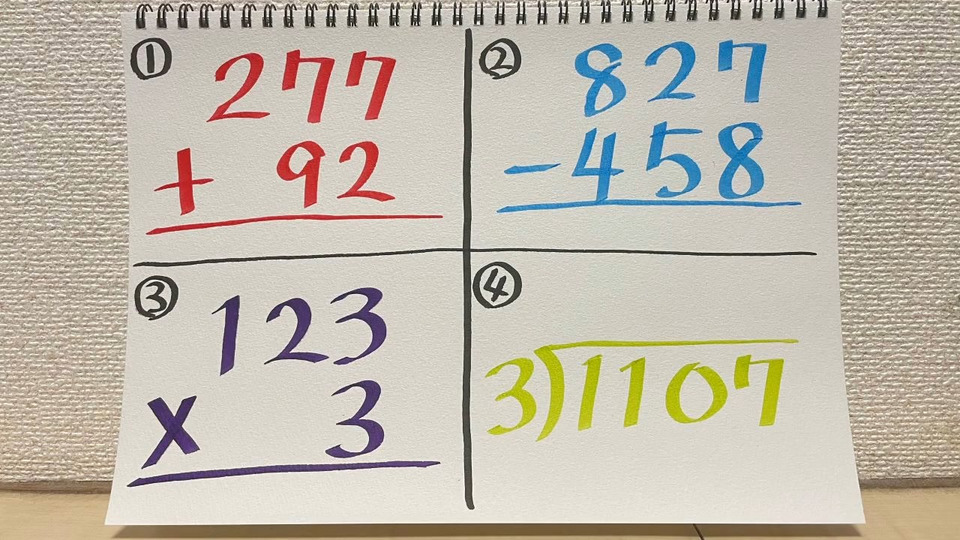 ①
277
+ 92
②
827
-458
③
123
x 3
④
3)1107